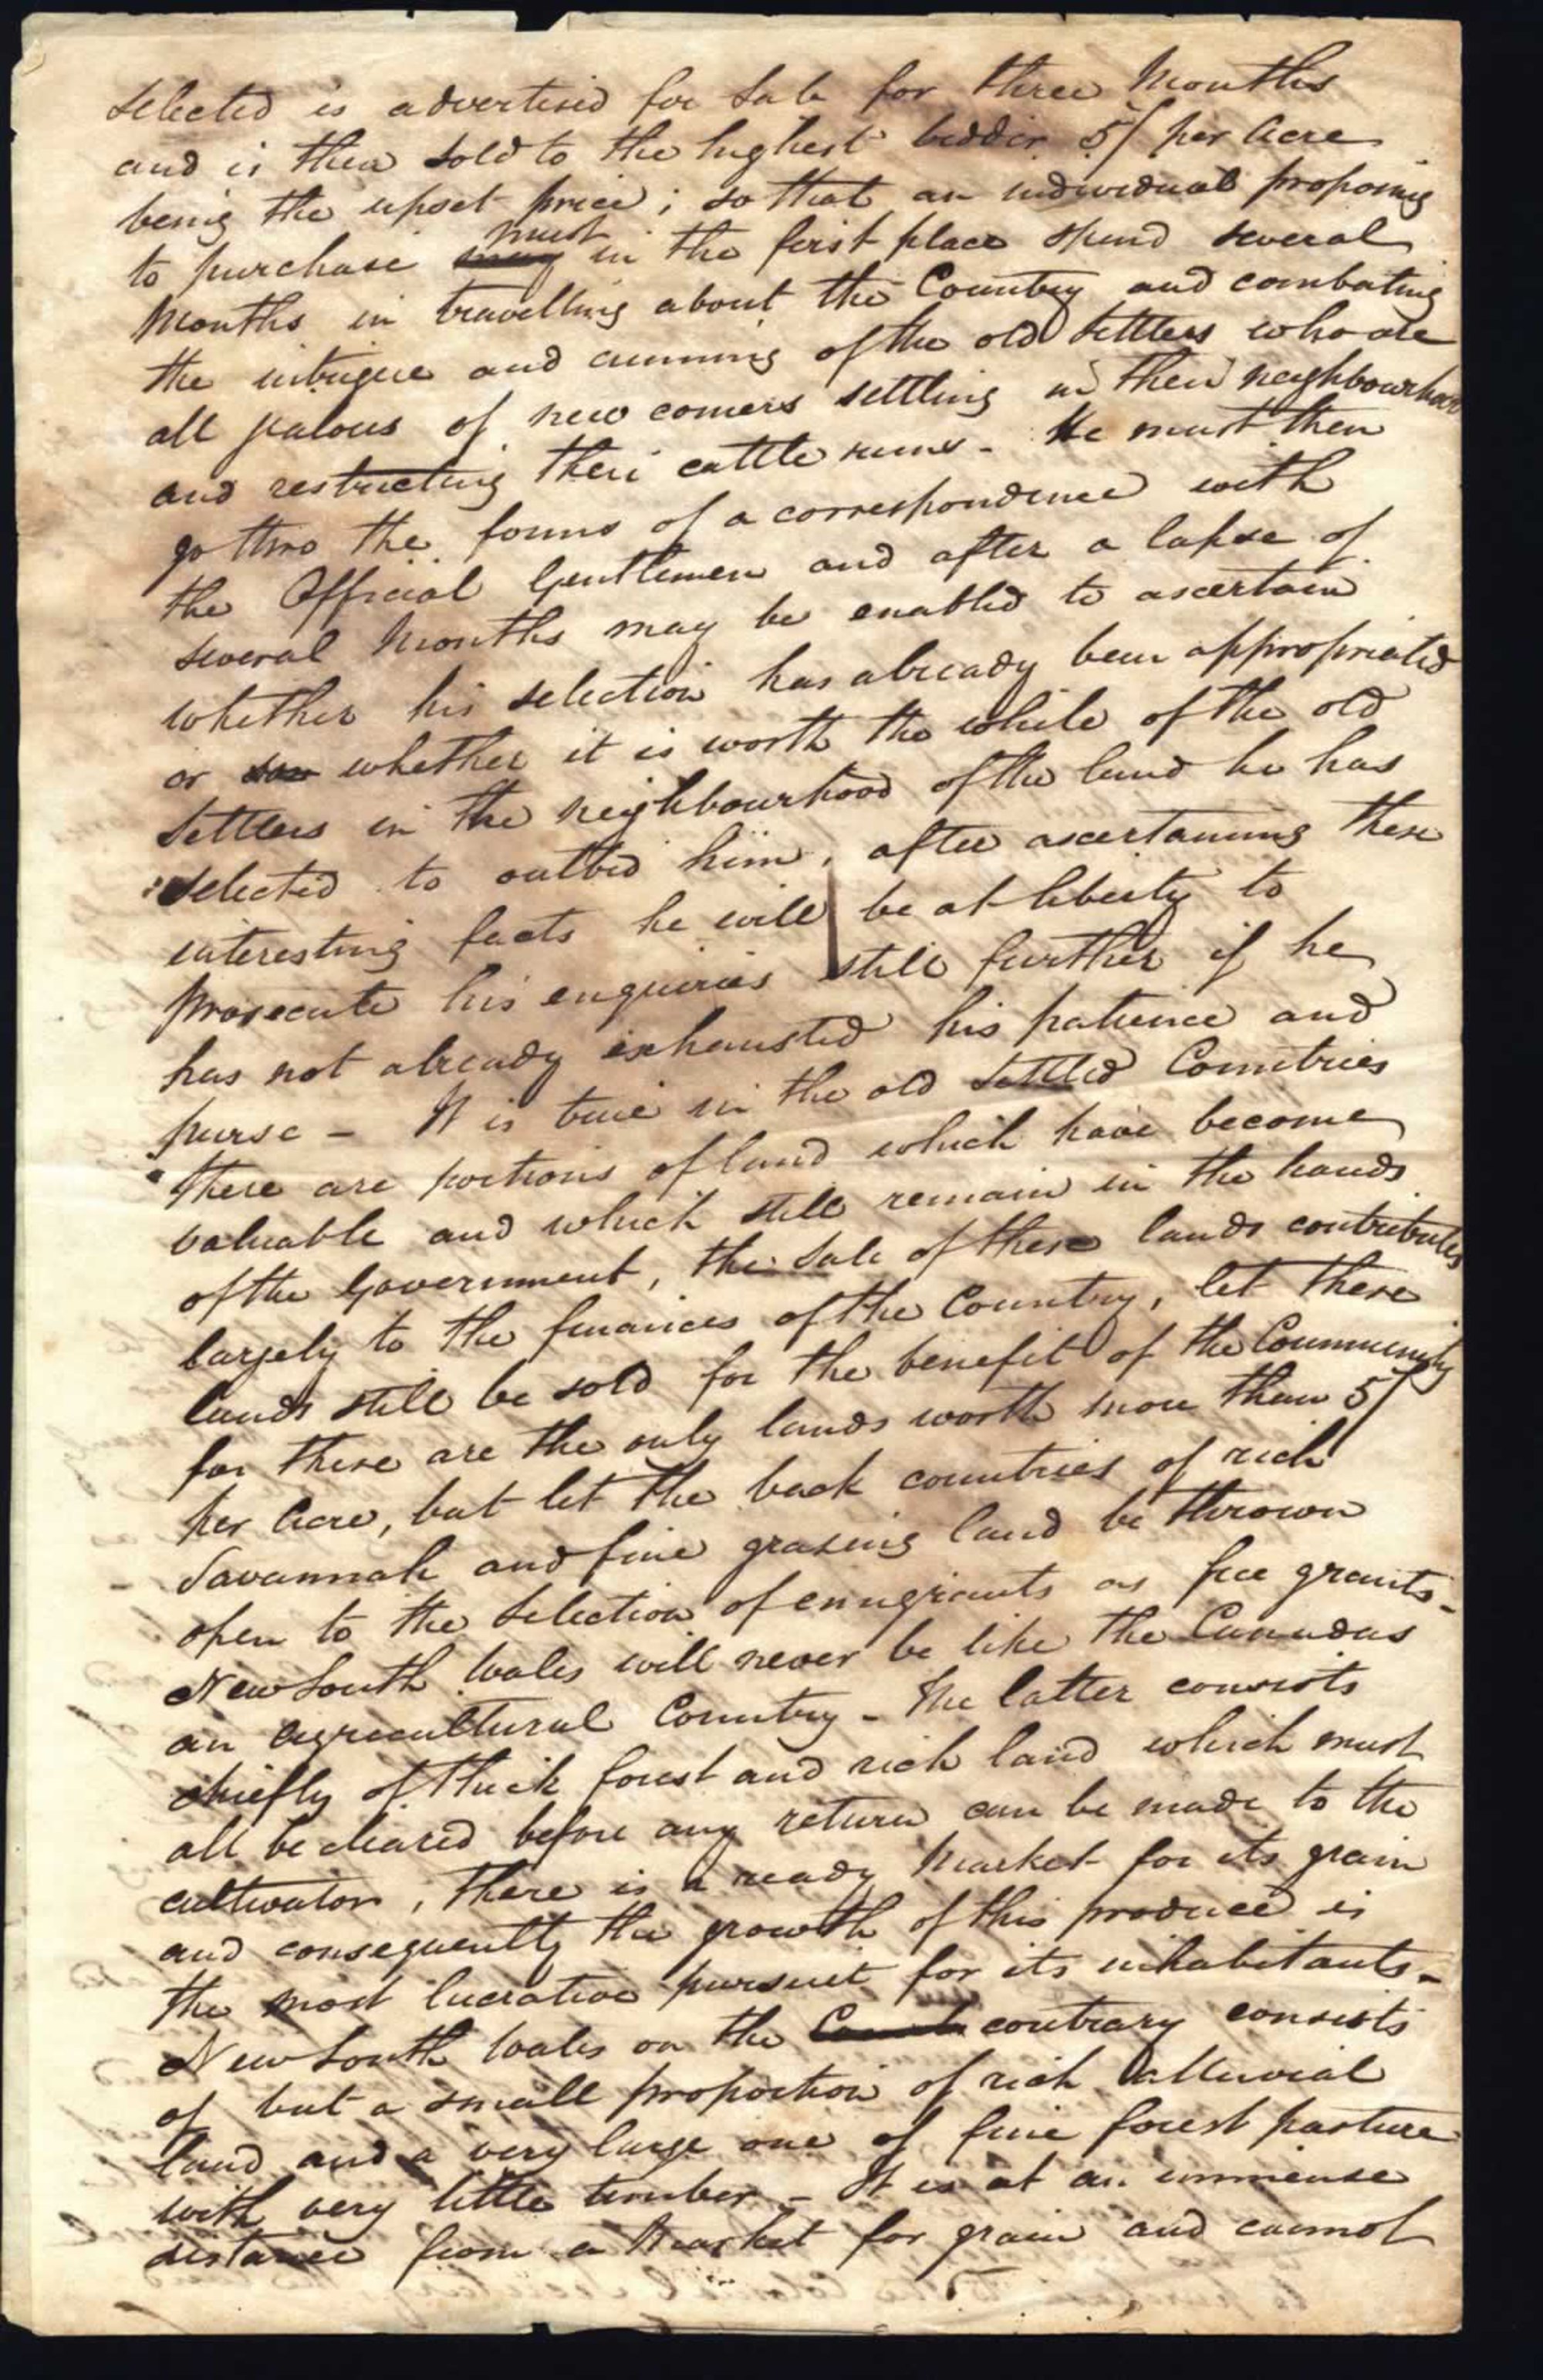 selected is advertised for Sale for three Months
and is then sold to the highest bidder 5/ per Acre
being the upset price; so that an individual proposing
must
to purchase may in the first place spend several
Months in travelling about the Country and combating
the intrigue and cunning of the old Settlers who are
all jealous of new comers settling in their neighbourhood
and restricting their cattle runs - He must then
go thro the forms of a correspondence with
the Official Gentlemen and after a lapse of
several Months may be enabled to ascertain
whether his selection has already been appropriated
or whether it is worth the while of the old
Settlers in the neighbourhood of the land he has
selected to outbid him, after ascertaining these
interesting facts he will be at liberty to
prosecute his enquiries still further if he
has not already exhausted his patience and
purse - It is true in the old settled Countries
there are portions of land which have become
valuable and which still remain in the hands
of the Government, the Sale of these lands contributes
largely to the finances of the Country, let these
lands still be sold for the benefit of the Community
for these are the only lands worth more than 5/
per Acre, but let the back countries of rich
Savannah and fine grazing land be thrown
open to the Selection of emigrants as free grants -
New South Wales will never be like the Canadas
an Agricultural Country - The latter consists
chiefly of thick forest and rich land which must
all be cleared before any return can be made to the
cultivator, there is a ready Market for its grain
and consequently the growth of this produce is
the most lucrative pursuit for its inhabitants -
New South Wales on the contrary consists
of but a small proportion of rich alluvial
land and a very large one of fine forest pasture
with very little timber - It is at an immense
distance from a Market for grain and cannot